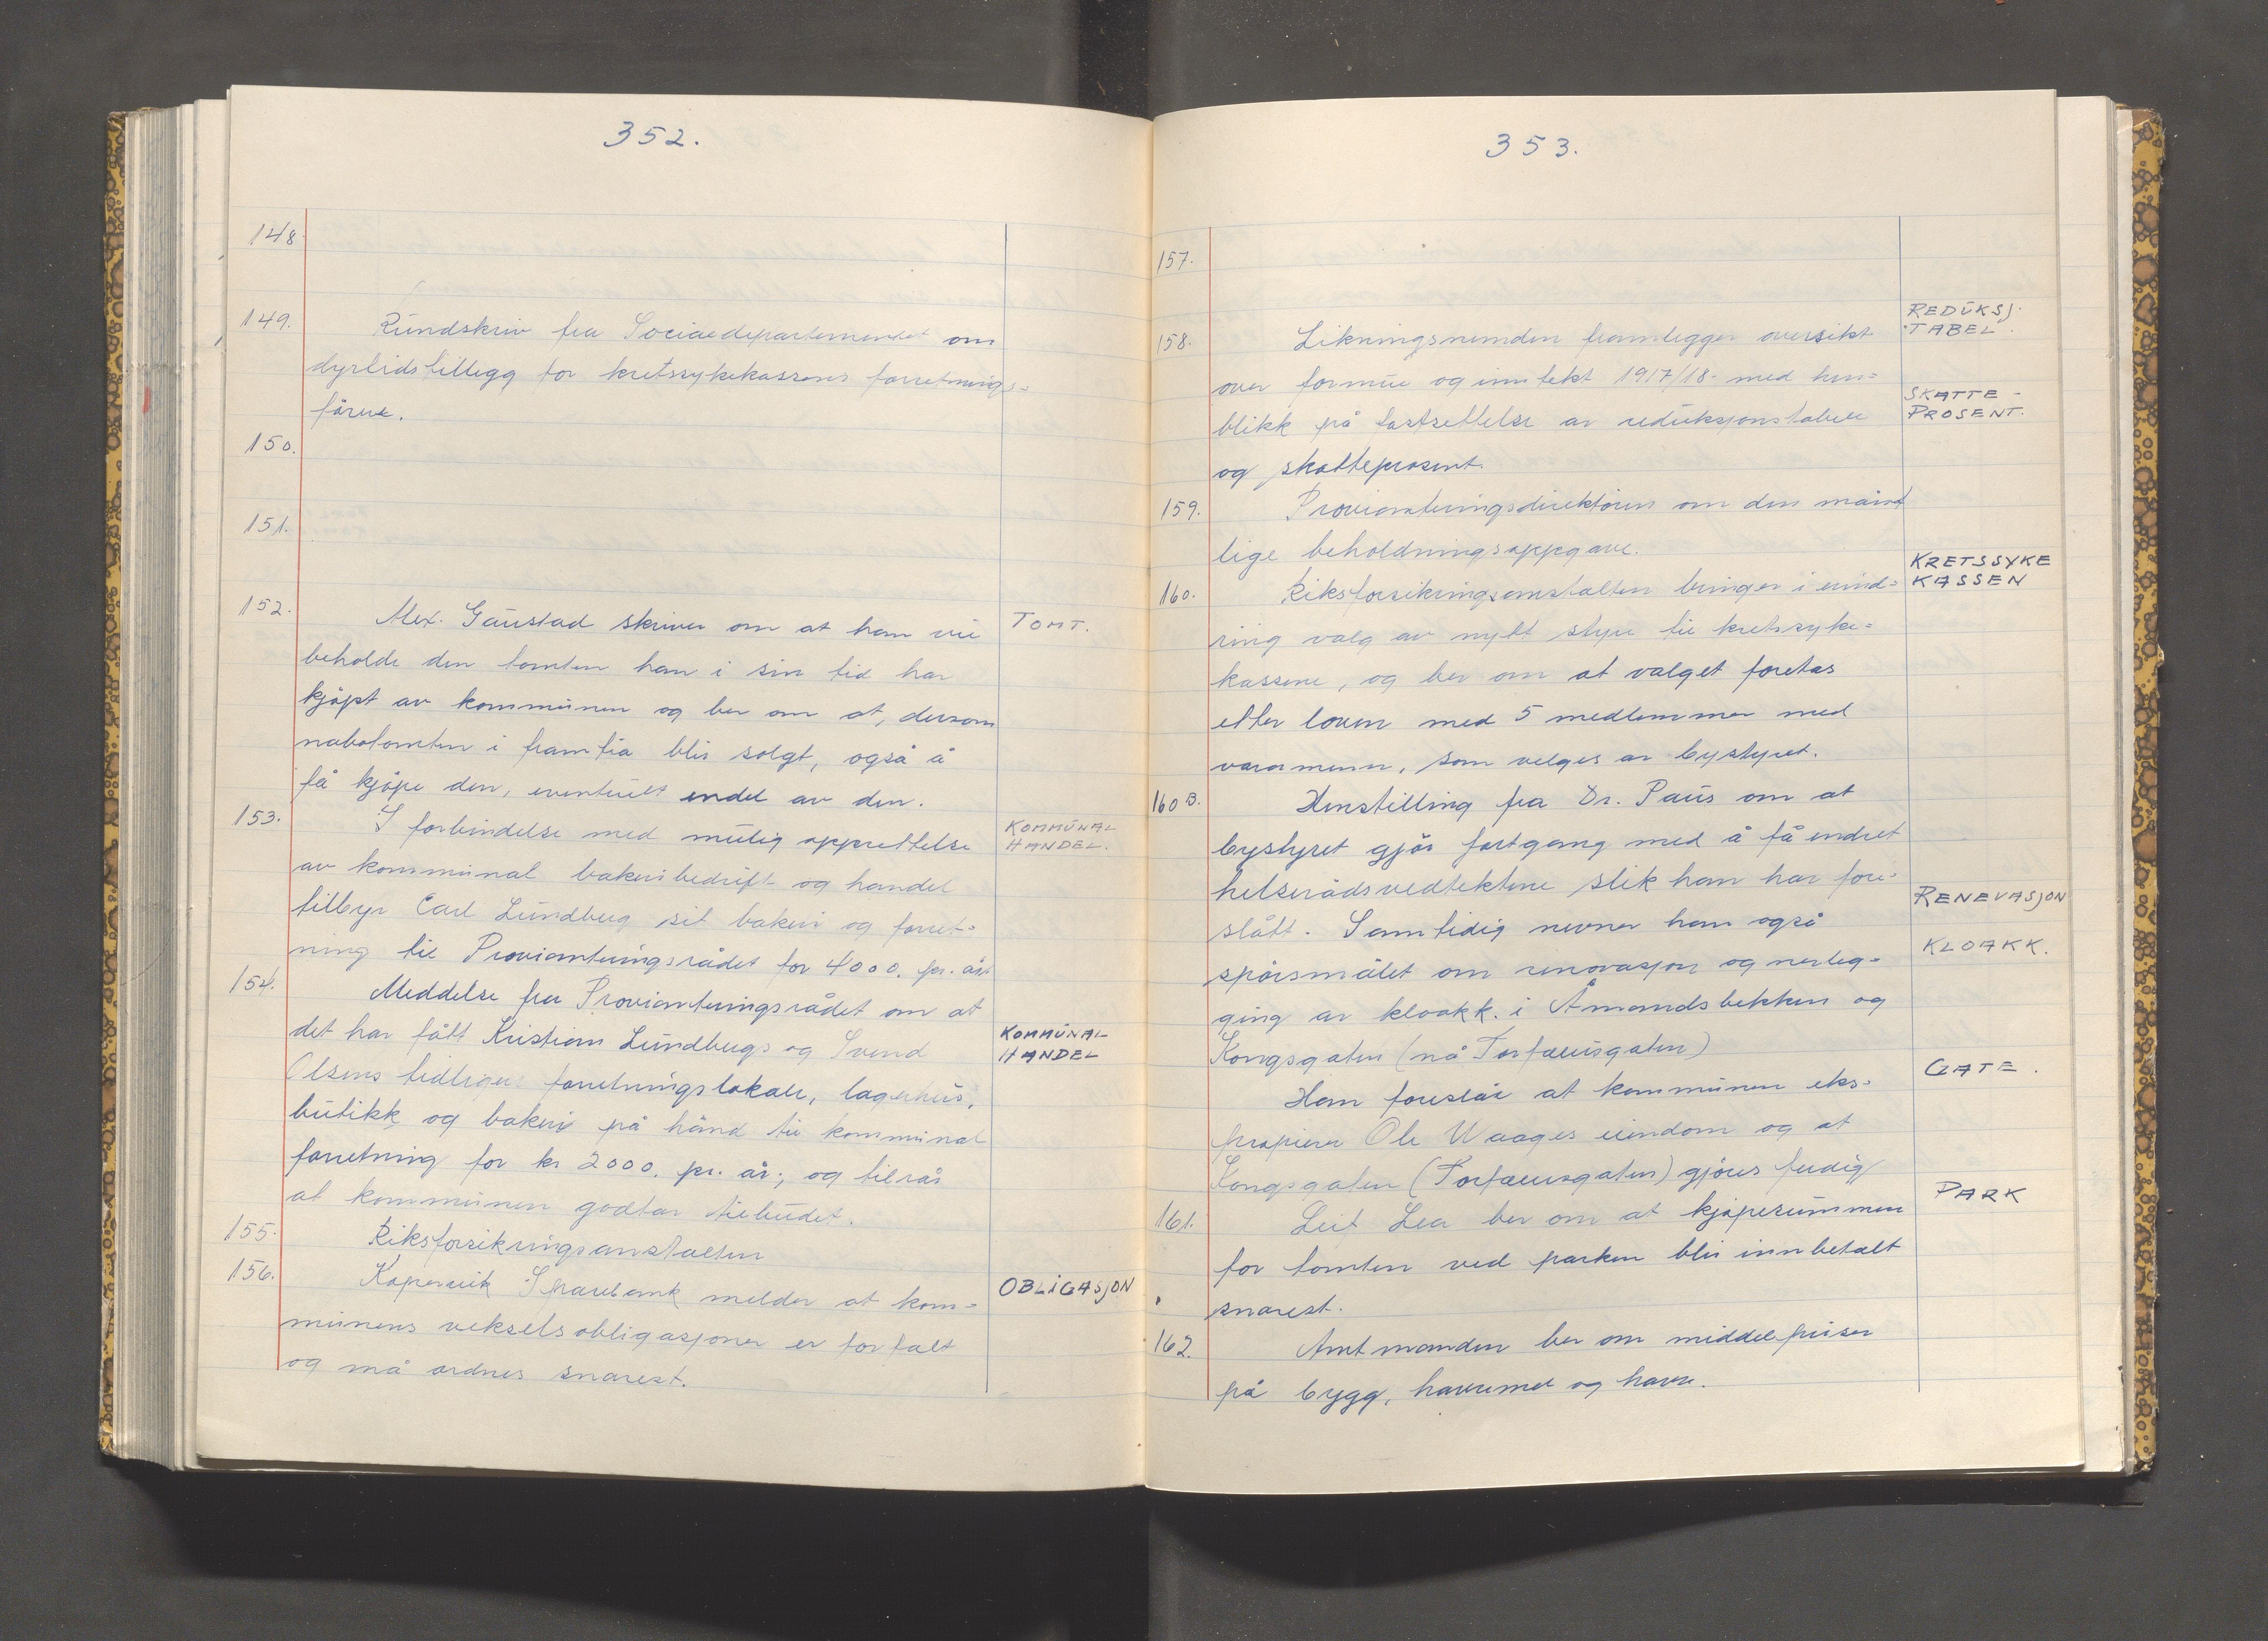 352.
148.
149. Rundskriv fra Socialdepartementet om
dyrtidstillegg for kretssykekassens forretnings=
förer.
150.
151.
152. Alex. Gaustad skriver om at han vil TOMT.
beholde den tomten han i sin tid har
kjöpt av kommunen og ber om at, dersom
nabotomten i framtia blir solgt, også å
få kjöpe den, eventuelt endel av den.
153. I forbindelse med mulig opprettelse KOMMUNAL
HANDEL.
av kommunal bakeribedrift og handel
tilbyr Carl Lundberg sit bakeri og forret=
ning til Provianteringsrådet for 4000. pr. år.
154. Meddelse fra Provianteringsrådet om at
det har fått Kristian Lundbergs og Svend KOMMUNAL
HANDEL
Olsens tidligere forretningslokale, lagerhus,
butikk og bakeri på hånd til kommunal
forretning for kr 2000. pr. år; og tilrår
at kommunen godtar tilbudet.
155. Riksforsikringsanstalten
156. Kopervik Sparebank melder at kom= OBLIGASJON
munens vekselsobligasjoner er forfalt
og må ordnes snarest.
353.
157.
158. Likningsnemden framlegger oversikt REDUKSJ.
TABEL.
over formue og inntekt 1917/18. med hen=
blikk på fastsettelse av reduksjonstabell SKATTE-
PROSENT.
og skatteprosent.
159. Provianteringsdirektören om den månt
lige beholdningsoppgave.
160. Riksforsikringsanstalten bringer i erind= KRETSSYKE
KASSEN
ring valg av nytt styre til kretssyke=
kassene, og ber om at valget foretas
etter loven med 5 medlemmer med
varamenn, som velges av bystyret.
160 B. Henstilling fra Dr. Paus om at
bystyret gjör fortgang med å få endret
helserådsvedtektene slik han har fore= RENEVASJON
slått. Samtidig nevner han også
spörsmålet om renovasjon og nerleg= KLOAKK.
ging av kloakk. i Åmandsbekken og
Kongsgaten (nå Torfæusgaten)
Han foreslår at kommunen eks= GATE.
propierer Ole Waages eiendom og at
Kongsgaten (Torfæusgaten) gjöres ferdig
161. Leif Lea ber om at kjöpesummen PARK
for tomten ved parken blir innbetalt
snarest.
162. Amtmanden ber om middelpriser
på bygg, havremel og havre.